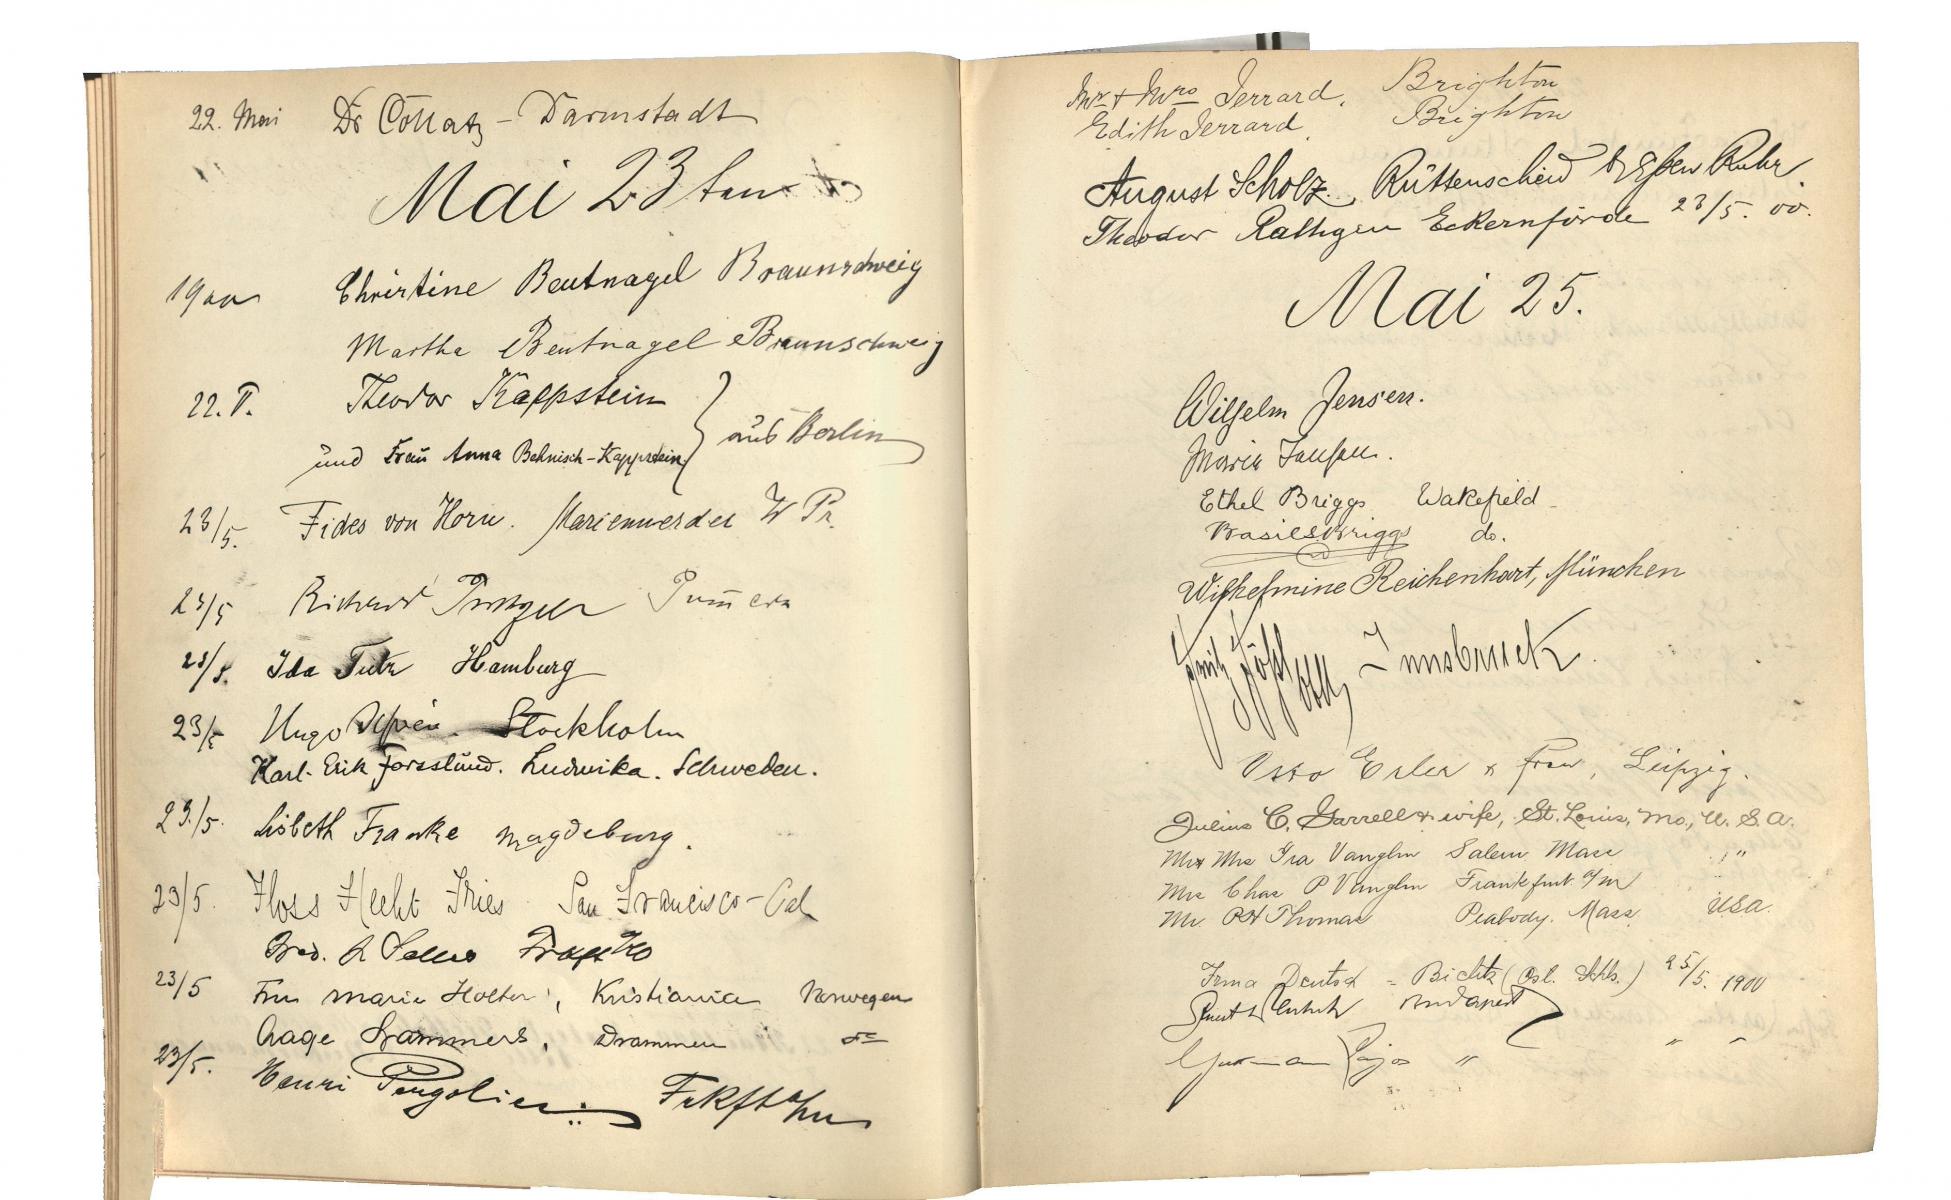 22. Mai Dr Collatz - Darmstadt
Mai 23ten
1900 Christine Beutnagel Braunschweig
Martha Beutnagel Braunschweig
22. V. Theodor Kappstein
und Frau Anna Behnisch-Kappstein } aus Berlin
23/5. Fides von Horn. Marienwerder W Pr.
23/5 Richard
23/5. Ida Hamburg
23/5 Hugo Alfvén. Stockholm
Karl-Erik Forsslund. Ludwika. Schweden.
23./5. Lisbeth Franke Magdeburg.
23/5. Floss Hecht Fries San Francisco-Cal
Fred.
23/5 Frau Marie Holter, Kristiania Norwegen
Aage Drammen do
23/5. Henri Frkft a/m
Mr & Mrs Jerrard, Brighton
Edith Jerrard Brighton
August Scholz, Rüttenscheid b/Essen Ruhr
Theodor Rathgen Eckernförde 23/5. 00.
Mai 25.
Wilhelm Jensen.
Marie Jensen.
Ethel Briggs Wakefield
Basil S. Briggs do.
Wilhelmine Reichenhart, München
Fritz - Innsbruck
Otto Erler & Frau, Leipzig.
Julius C. Garrell & wife, St. Louis, Mo., U.S.A.
Mr & Mrs Ira Vaughn Salem Mass "
Mrs Chas P Vaughn Frankfurt a/m
Mr. Thomas Peabody. Mass. USA.
Irma Deutsch - Bielitz (Öst. Schls.) 25/5. 1900
Budapest
" " "